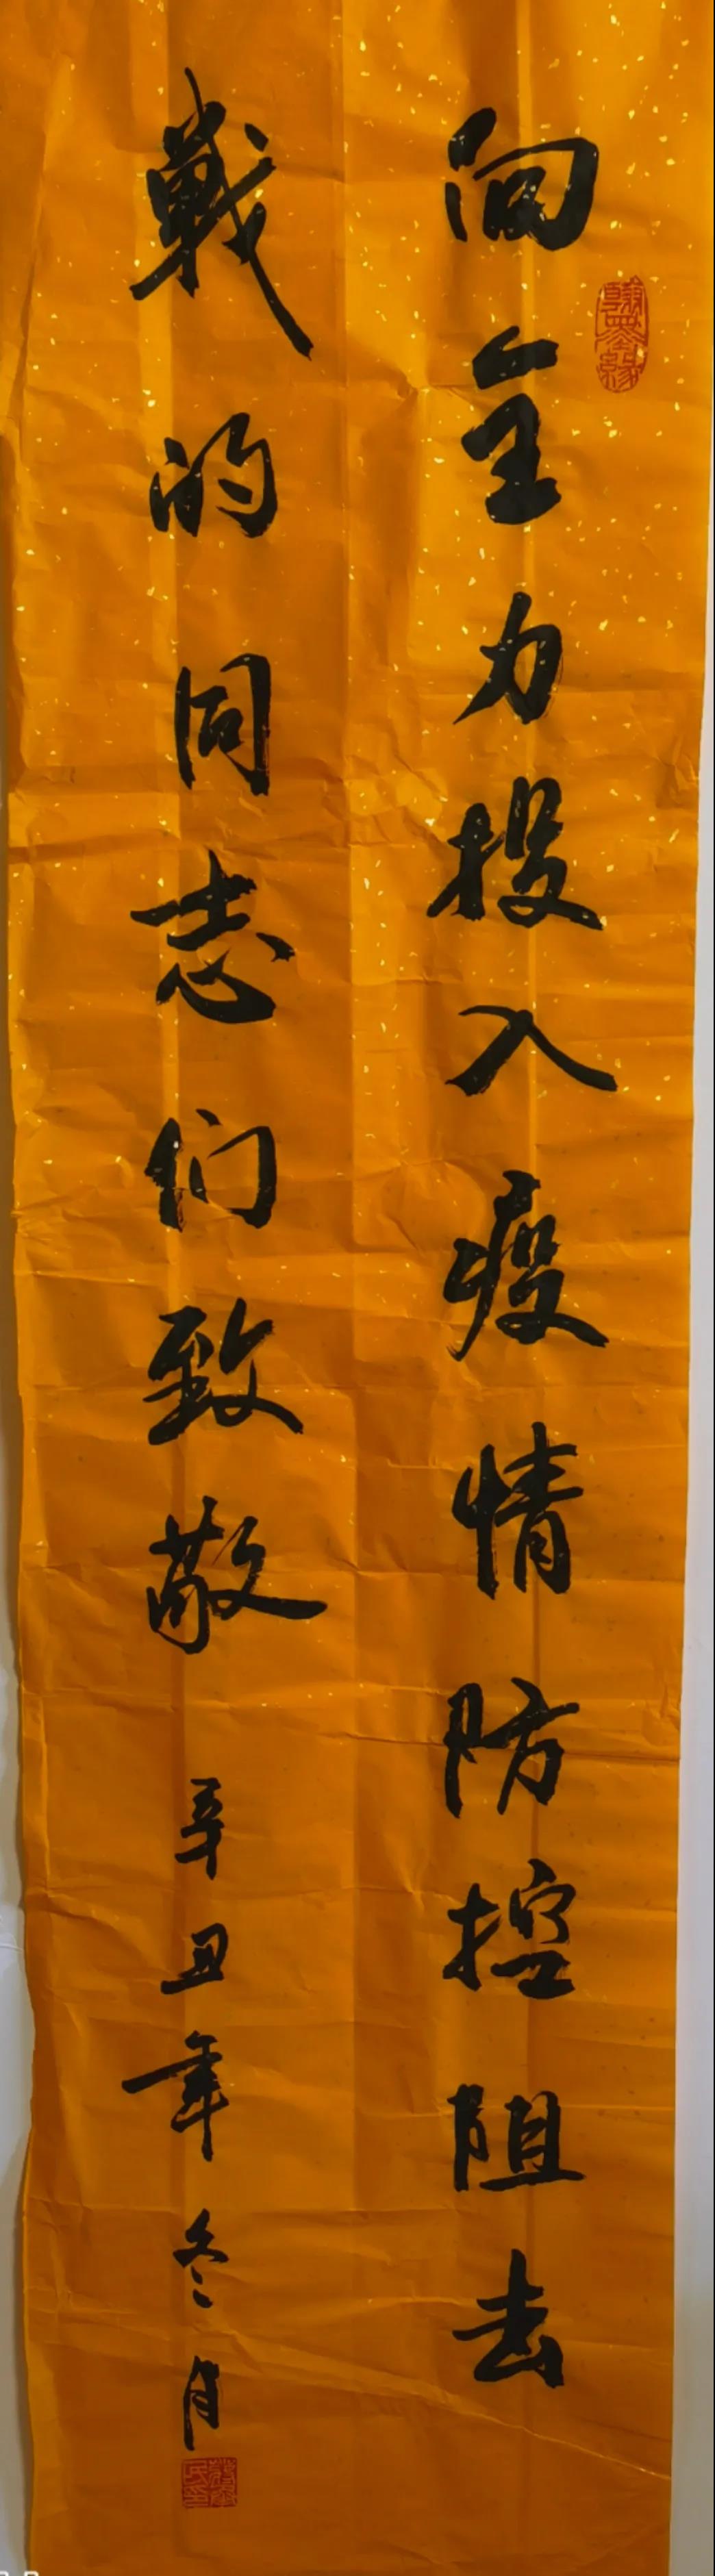 向全力投入疫情防控阻击
戰的同志们致敬
辛丑年冬月
翰墨缘